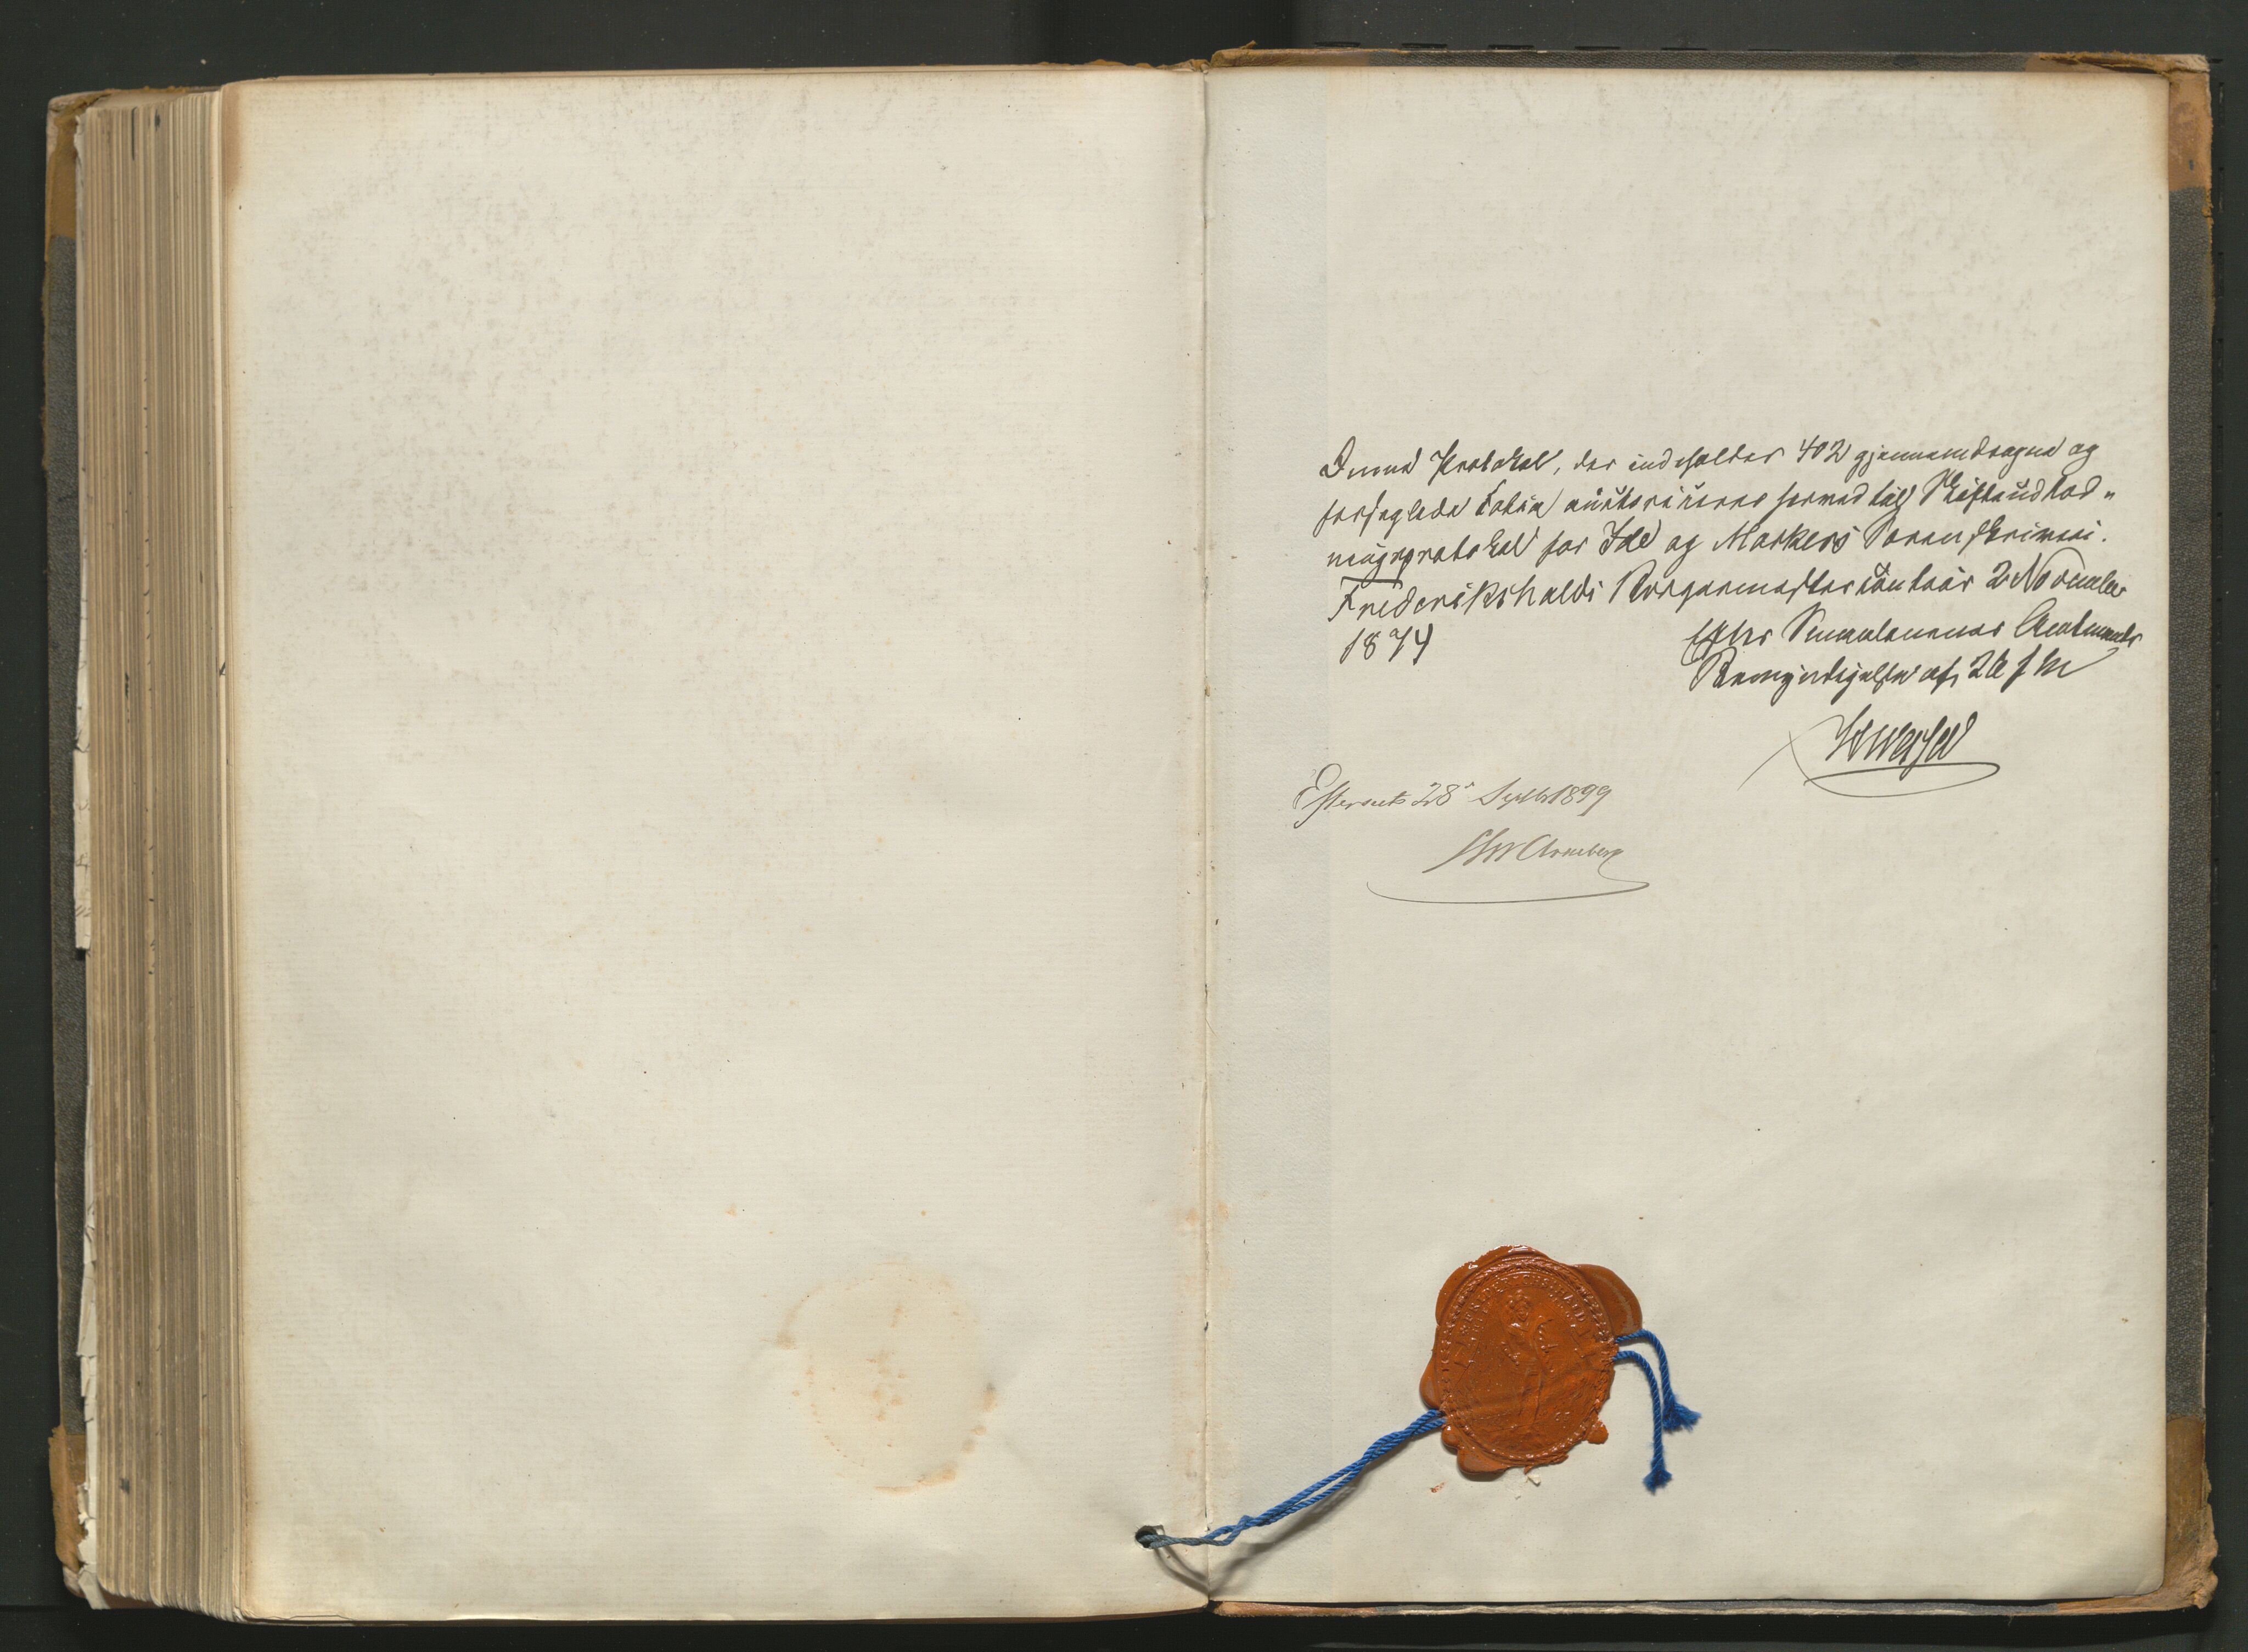 Denne Protokol, der indeholder 402 gjennemdragne og
forseglede Folia autoriseres herved til Skifteudlod„
ningsprotokol for Idd og Markers Sorenskriveri.
Frederikshalds Borgermestercontoir 2 November
1874
Efter Smaalenenes Amtmands
Bemyndigelse af 26 f M
Efterseet 28de Septbr 1899
Arneberg